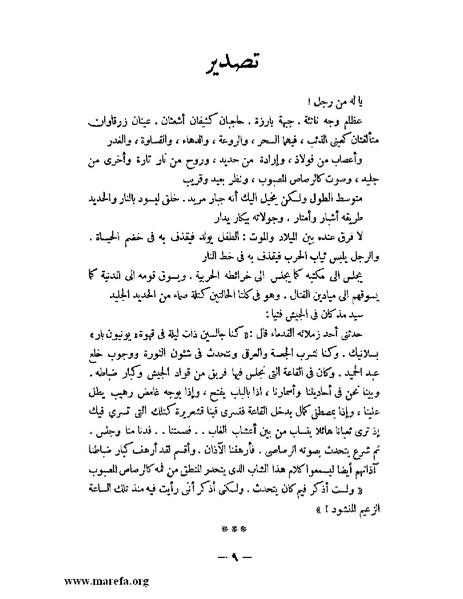 تصدير
يا له من رجل !
عظام وجه ناتئة . جبهة بارزة . حاجبان كثيفان أشعثان . عينان زرقاوان
متألقتان كعينى الذئب ، فيهما السحر ، والروعة ، والدهاء ، والقساوة ، والغدر
وأعصاب من فولاذ ، وإرادة من حديد ، وروح من نار تارة وأخرى من
جليد ، وصوت كالرصاص المصبوب ، ونظر بعيد وقريب
متوسط الطول ولكن يخيل اليك أنه جبار مريد . خلق ليسود بالنار والحديد
طريقه أشبار وأمتار . وجولاته بيكار يدار
لا فرق عنده بين الميلاد والموت : الطفل يولد فيقذف به فى خضم الحياة .
والرجل يلبس ثياب الحرب فيقذف به فى خط النار
يجلس الى مكتبه كما يجلس الى خرائطه الحربية . ويسوق قومه الى المدنية كما
يسوقهم الى ميادين القتال . وهو فى كلتا الحالتين كتلة صماء من الحديد الجليد
سيد مذ كان فى الجيش فتيا :
حدثنى أحد زملائه القدماء قال : « كنا جالسين ذات ليلة فى قهوة « يونيون بار »
بسلانيك . وكنا نشرب الجعة والعرقى ونتحدث فى شئون الثورة ووجوب خلع
عبد الحميد . وكان فى القاعة التى نجلس فيها فريق من قواد الجيش وكبار ضباطه .
وبينا نحن فى أحاديثنا وأسمارنا ، اذا بالباب يفتح ، وإذا بوجه غامض رهيب يطل
علينا ، وإذا بمصطفى كمال يدخل القاعة فتسرى فينا قشعريرة كتلك التى تسرى فيك
إذ ترى ثعبانا هائلا ينساب من بين أعشاب الغاب . . فصمتنا . . فدنا منا وجلس .
ثم شرع يتحدث بصوته الرصاصى . فأرهفنا الآذان . وأقسم لقد أرهف كبار ضباطنا
آذانهم أيضا ليسمعوا كلام هذا الشاب الذى يتحدر المنطق من فمه كالرصاص المصبوب
« ولست أذكر فيم كان يتحدث . ولكنى أذكر أنى رأيت فيه منذ تلك الساعة
الزعيم المنشود ! »
***
— ٩ —
www.marefa.org